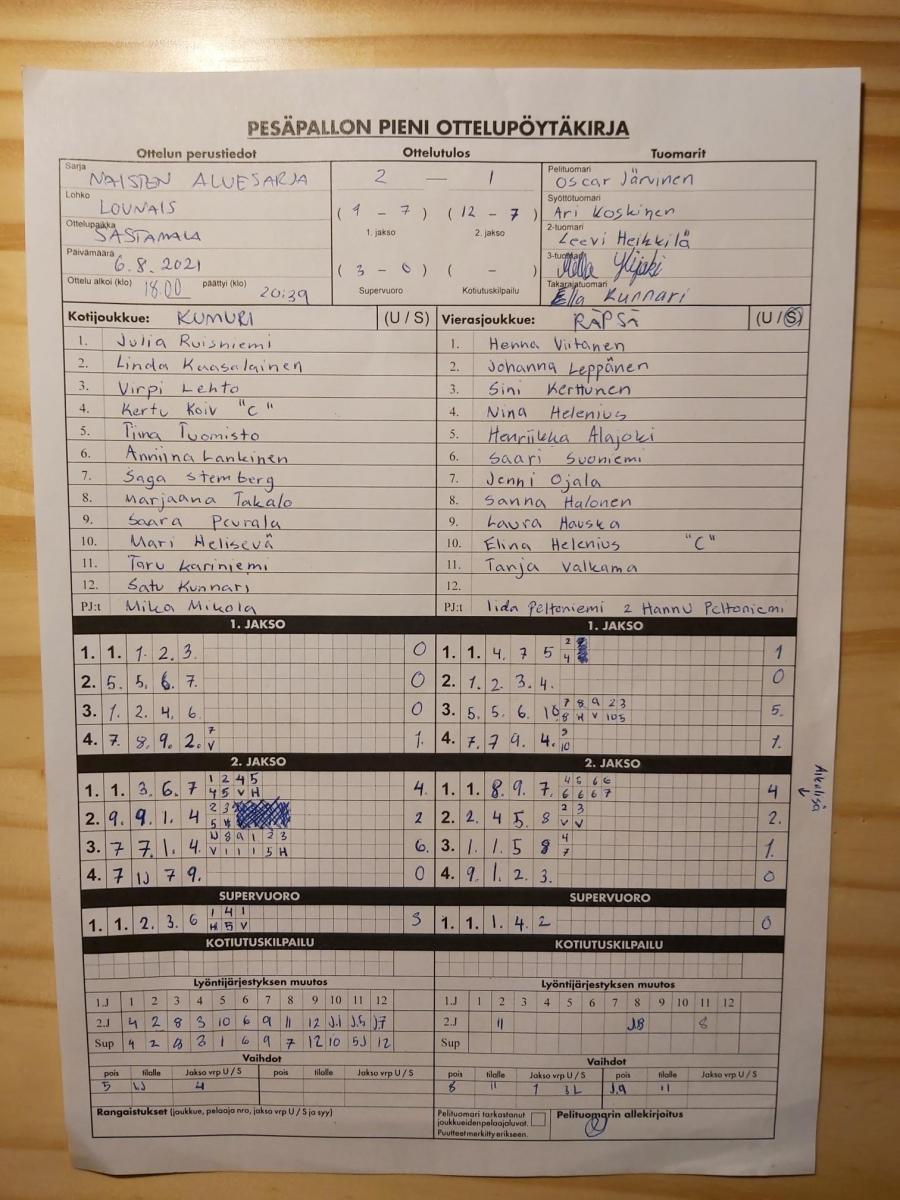 PESÄPALLON PIENI OTTELUPÖYTÄKIRJA
Ottelun perustiedot Ottelutulos Tuomarit
Sarja NAISTEN ALUESARJA
Lohko LOUNAIS
Ottelupaikka SASTAMALA
Päivämäärä 6.8.2021
Ottelu alkoi (klo) 18.00 päättyi (klo) 20:39
2 — 1
( 1 - 7 ) ( 12 - 7 )
1. jakso 2. jakso
( 3 - 0 ) ( - )
Supervuoro Kotiutuskilpailu
Pelituomari Oscar Järvinen
Syöttötuomari Ari Koskinen
2-tuomari Leevi Heikkilä
3-tuomari Ylijoki
Takarajatuomari Ella Kunnari
Kotijoukkue: KUMURI (U / S) Vierasjoukkue: RÄPSÄ (U / S)
1. Julia Ruisniemi 1. Henna Viitanen
2. Linda Kaasalainen 2. Johanna Leppänen
3. Virpi Lehto 3. Sini Kerttunen
4. Kertu Koiv "C" 4. Nina Helenius
5. Tiina Tuomisto 5. Henriikka Alajoki
6. Anniina Lankinen 6. Saari Suoniemi
7. Saga Stemberg 7. Jenni Ojala
8. Marjaana Takalo 8. Sanna Halonen
9. Saara Peurala 9. Laura Hauska
10. Mari Helisevä 10. Elina Helenius "C"
11. Taru Kariniemi 11. Tanja Valkama
12. Satu Kunnari 12.
PJ:t Mika Mikola PJ:t Iida Peltoniemi 2 Hannu Peltoniemi
1. JAKSO 1. JAKSO
1. 1. 1. 2. 3. 0 1. 1. 4. 7 5 2 4 1
2. 5. 5. 6. 7. 0 2. 1. 2. 3. 4. 0
3. 1. 2. 4. 6. 0 3. 5. 5. 6. 10 7 8 9 2 3 8 H V 10 5 5.
4. 7. 8. 9. 2. 7 V 1. 4. 7. 7 9. 4. 9 10 1.
2. JAKSO 2. JAKSO
1. 1. 3. 6. 7 1 2 4 5 4 5 V H 4. 1. 1. 8. 9. 7. 4 5 6 6 6 6 6 7 4
2. 9. 9. 1. 4 2 3 5 2 2. 2. 4 5. 8 2 3 V V 2.
3. 7 7. 1. 4. 8 9 1 2 3 V 1 1 1 5 H 6. 3. 1. 1. 5 8 4 7 1.
4. 7 7 9. 0 4. 9. 1. 2. 3. 0
Aikalisä
SUPERVUORO SUPERVUORO
1. 1. 2. 3. 6 1 4 1 H 5 V 3 1. 1. 1. 4. 2 0
KOTIUTUSKILPAILU KOTIUTUSKILPAILU
Lyöntijärjestyksen muutos Lyöntijärjestyksen muutos
1.J 1 2 3 4 5 6 7 8 9 10 11 12 1.J 1 2 3 4 5 6 7 8 9 10 11 12
2.J 4 2 8 3 10 6 9 11 12 J.1 J.5 J7 2.J 11 J8 8
Sup 4 2 8 3 1 6 9 7 12 10 5J 12 Sup
Vaihdot Vaihdot
pois tilalle Jakso vrp U / S pois tilalle Jakso vrp U / S pois tilalle Jakso vrp U / S pois tilalle Jakso vrp U / S
5 4 8 11 1 3L J.9 11
Rangaistukset (joukkue, pelaaja nro, jakso vrp U / S ja syy)
Pelituomari tarkastanut joukkueiden pelaajaluvat.
Puutteet merkitty erikseen.
Pelituomarin allekirjoitus